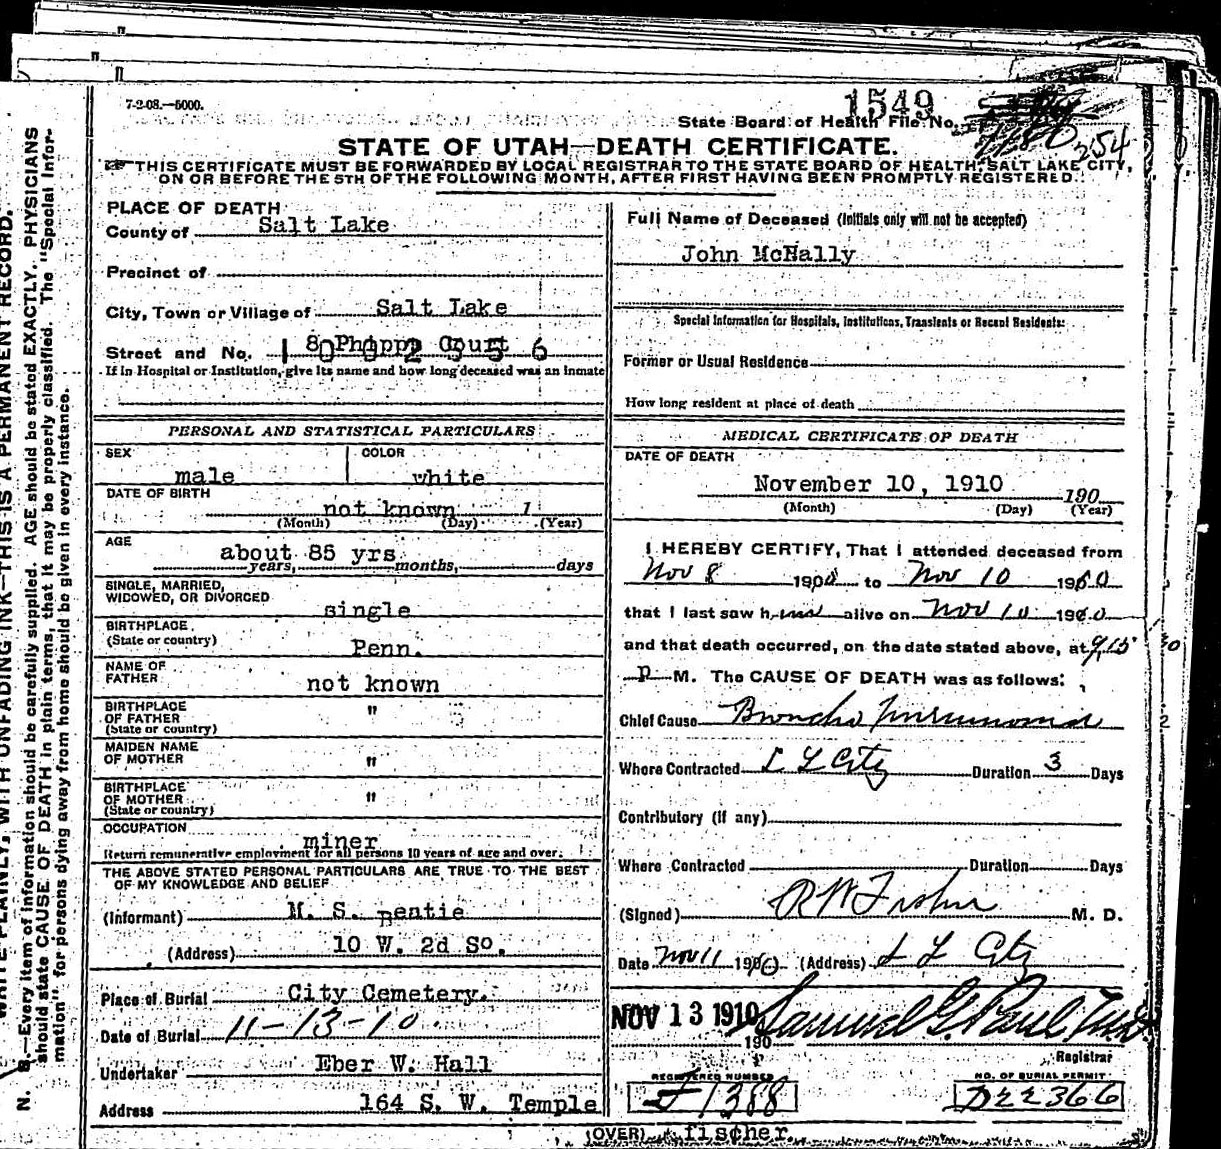 7-2-08.—5000.
1549
State Board of Health File No.
254
STATE OF UTAH—DEATH CERTIFICATE.
THIS CERTIFICATE MUST BE FORWARDED BY LOCAL REGISTRAR TO THE STATE BOARD OF HEALTH, SALT LAKE CITY,
ON OR BEFORE THE 5TH OF THE FOLLOWING MONTH, AFTER FIRST HAVING BEEN PROMPTLY REGISTERED.
PLACE OF DEATH
County of Salt Lake
Precinct of
City, Town or Village of Salt Lake
Street and No. Court
If in Hospital or Institution, give its name and how long deceased was an inmate
PERSONAL AND STATISTICAL PARTICULARS
SEX male COLOR white
DATE OF BIRTH not known 1
(Month) (Day) (Year)
AGE about 85 yrs
years, months, days
SINGLE, MARRIED,
WIDOWED, OR DIVORCED single
BIRTHPLACE
(State or country) Penn.
NAME OF
FATHER not known
BIRTHPLACE
OF FATHER "
(State or country)
MAIDEN NAME
OF MOTHER "
BIRTHPLACE
OF MOTHER "
(State or country)
OCCUPATION miner
Return remunerative employment for all persons 10 years of age and over.
THE ABOVE STATED PERSONAL PARTICULARS ARE TRUE TO THE BEST
OF MY KNOWLEDGE AND BELIEF
(Informant) M. S. Beatie
(Address) 10 W. 2d So.
Place of Burial City Cemetery.
Date of Burial 11-13-10.
Undertaker Eber W. Hall
Address 164 S. W. Temple
Full Name of Deceased (Initials only will not be accepted)
John McNally
Special Information for Hospitals, Institutions, Transients or Recent Residents:
Former or Usual Residence
How long resident at place of death
MEDICAL CERTIFICATE OF DEATH
DATE OF DEATH
November 10, 1910 190
(Month) (Day) (Year)
I HEREBY CERTIFY, That I attended deceased from
Nov 8 1910 to Nov 10 1910
that I last saw him alive on Nov 10 1910
and that death occurred, on the date stated above, at 9,15
P M. The CAUSE OF DEATH was as follows:
Chief Cause Broncho pneumonia
Where Contracted S L City Duration 3 Days
Contributory (if any)
Where Contracted Duration Days
(Signed) R W Fisher M. D.
Date Nov 11 1910 (Address) S L City
NOV 13 1910 Samuel G. Paul
190
Registrar
REGISTERED NUMBER
J 1388
NO. OF BURIAL PERMIT
D22366
(OVER) fischer
WRITE PLAINLY, WITH UNFADING INK—THIS IS A PERMANENT RECORD.
N. B.—Every item of information should be carefully supplied. AGE should be stated EXACTLY. PHYSICIANS
should state CAUSE OF DEATH in plain terms, that it may be properly classified. The "Special Infor-
mation" for persons dying away from home should be given in every instance.